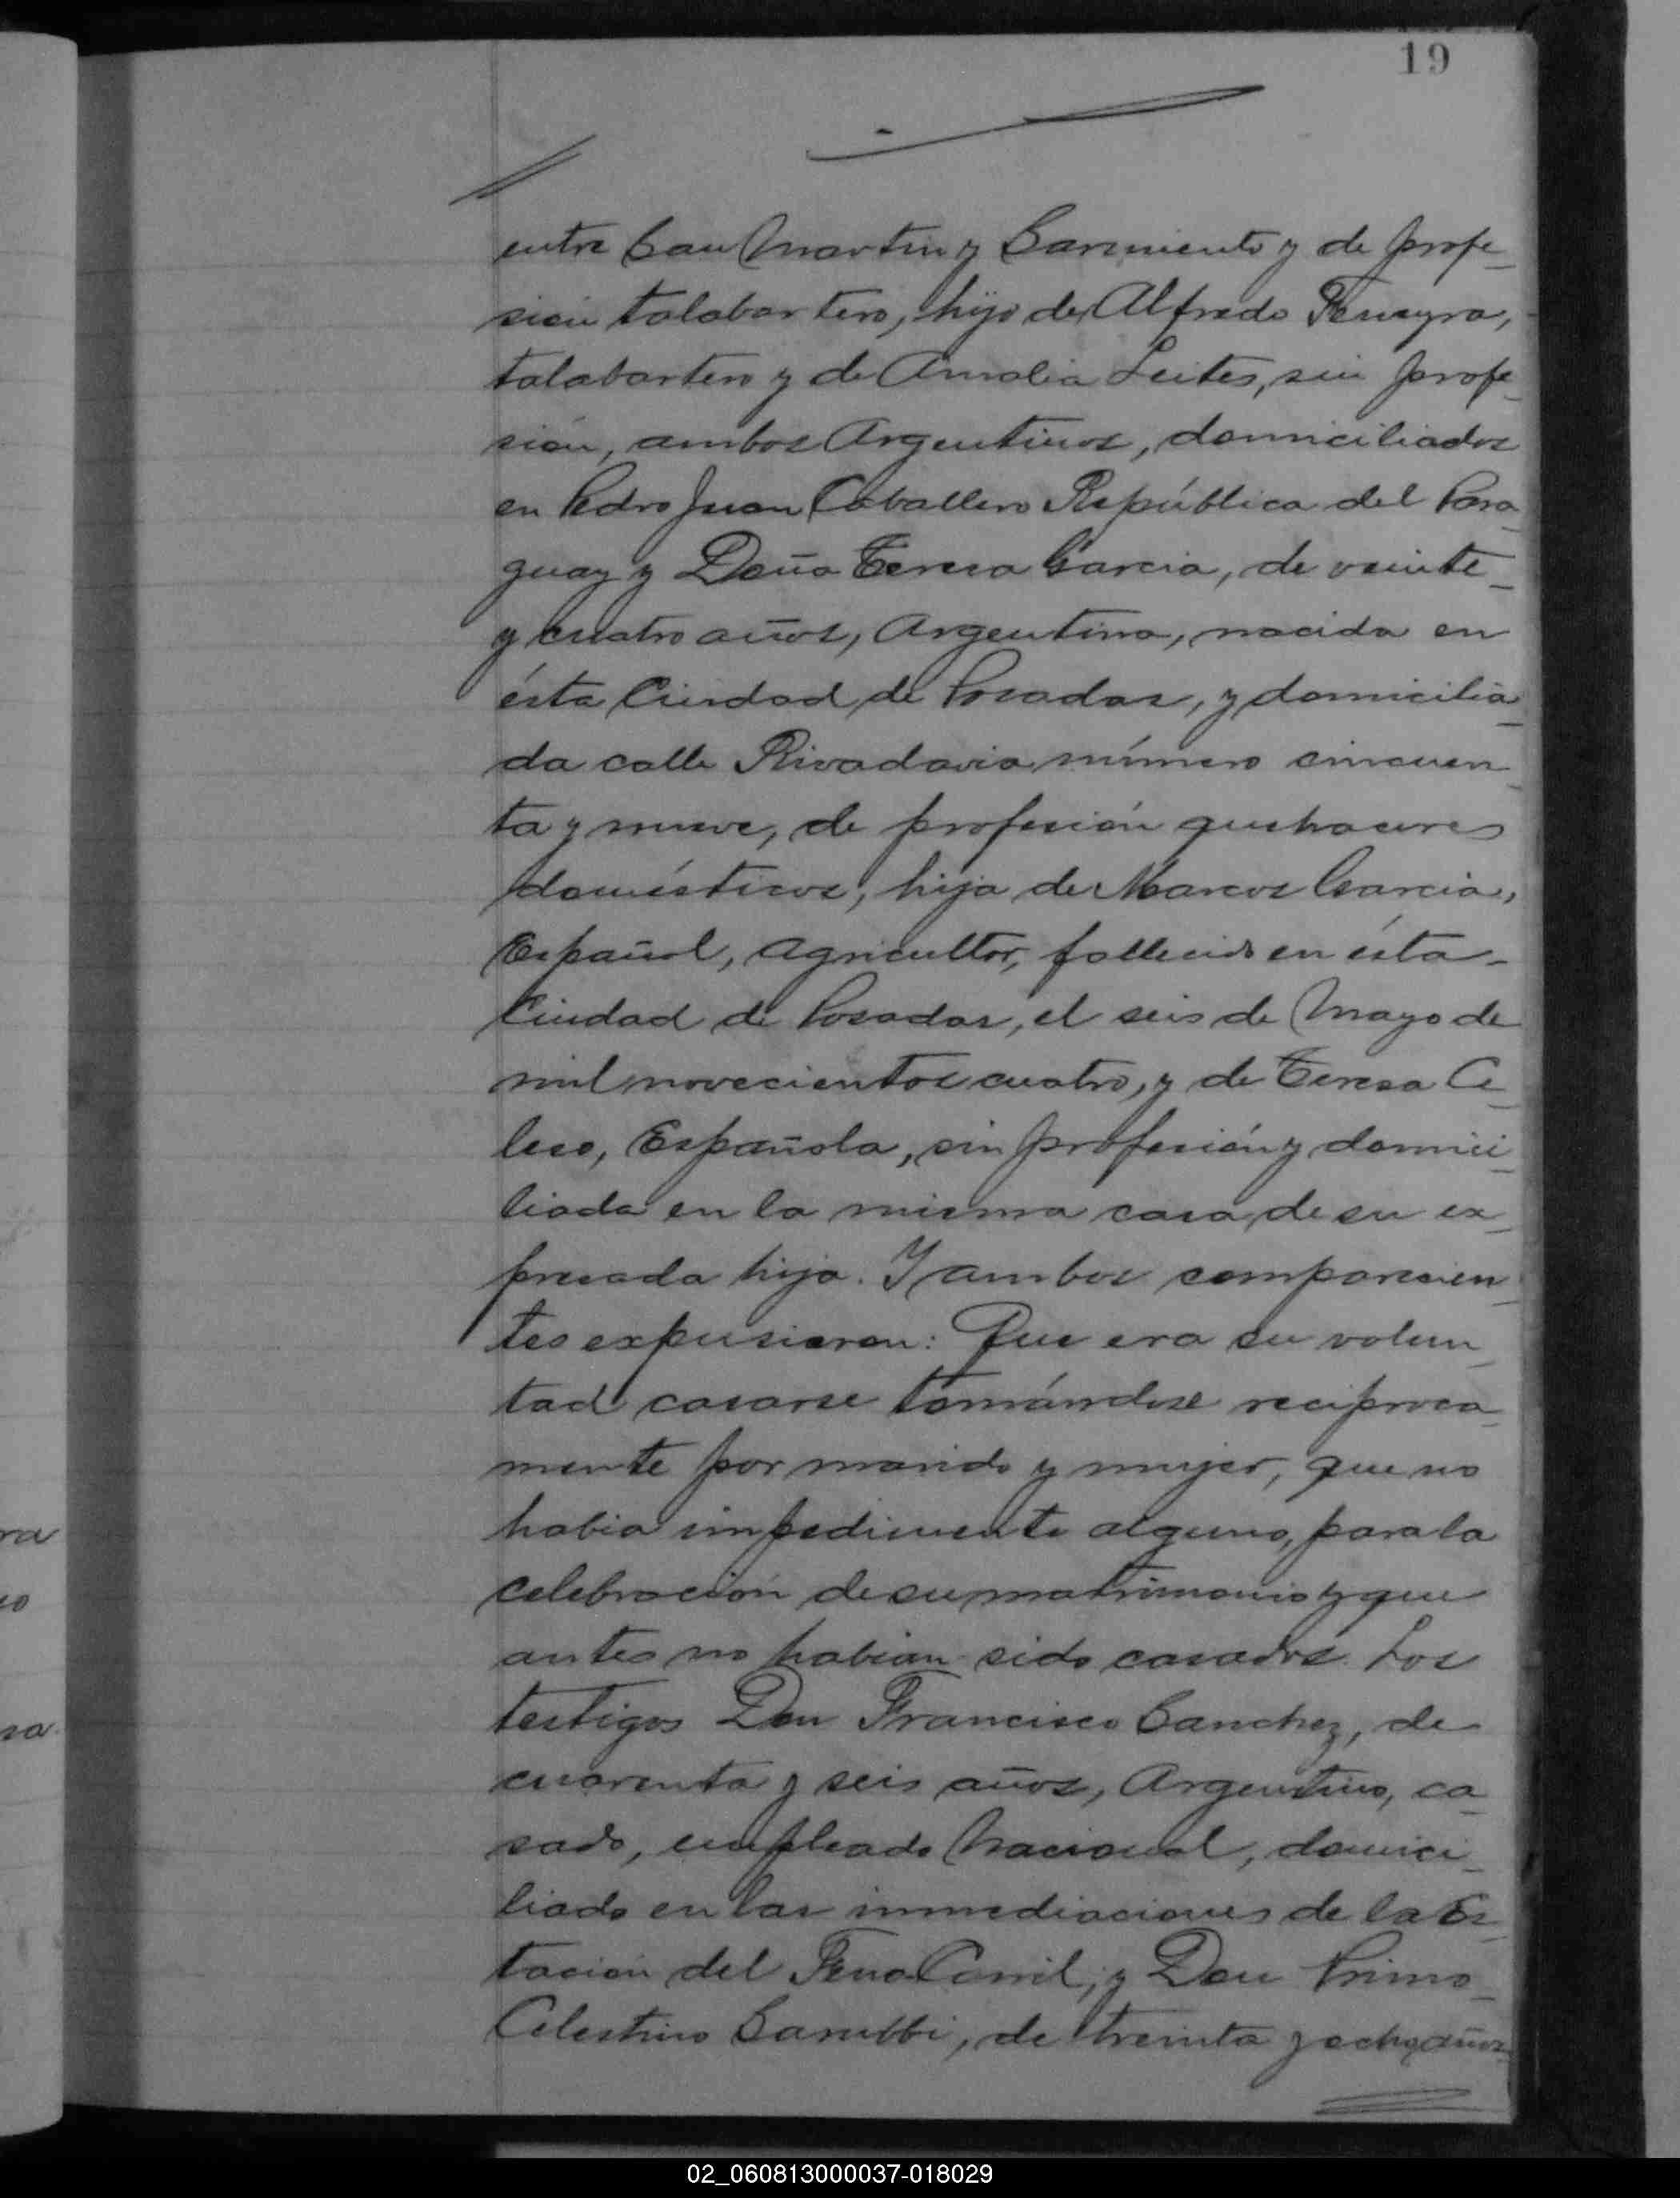 19
entre San Martin y Sarmiento y de profe-
sión talabartero, hijo de Alfredo Ferreyra,
talabartero y de Amalia Leites, sin profe-
sión, ambos Argentinos, domiciliados
en Pedro Juan Caballero República del Para-
guay y Doña Teresa Garcia, de veinte-
y cuatro años, Argentina, nacida en
ésta Ciudad de Posadas, y domicilia-
da calle Rivadavia número cincuen-
ta y nueve, de profesión quehaceres
domésticos, hija de Marcos Garcia,
Español, agricultor, fallecido en ésta-
Ciudad de Posadas, el seis de Mayo de
mil novecientos cuatro, y de Teresa
Española, sin profesión y domici-
liada en la misma casa de su ex-
presada hija. Y ambos comparecien-
tes expusieron: Que era su volun-
tad casarse tomándose reciproca-
mente por marido y mujer, que no
habia impedimento alguno, para la
celebración de su matrimonio y que
antes no habian sido casados. Los
testigos Don Francisco Sanchez, de
cuarenta y seis años, Argentino, ca-
sado, empleado Nacional, domici-
liado en las inmediaciones de la Es-
tación del Ferro Carril, y Don Primo-
Celestino Sarubbi, de treinta y ocho años
ra
io
sa.
02_060813000037-018029